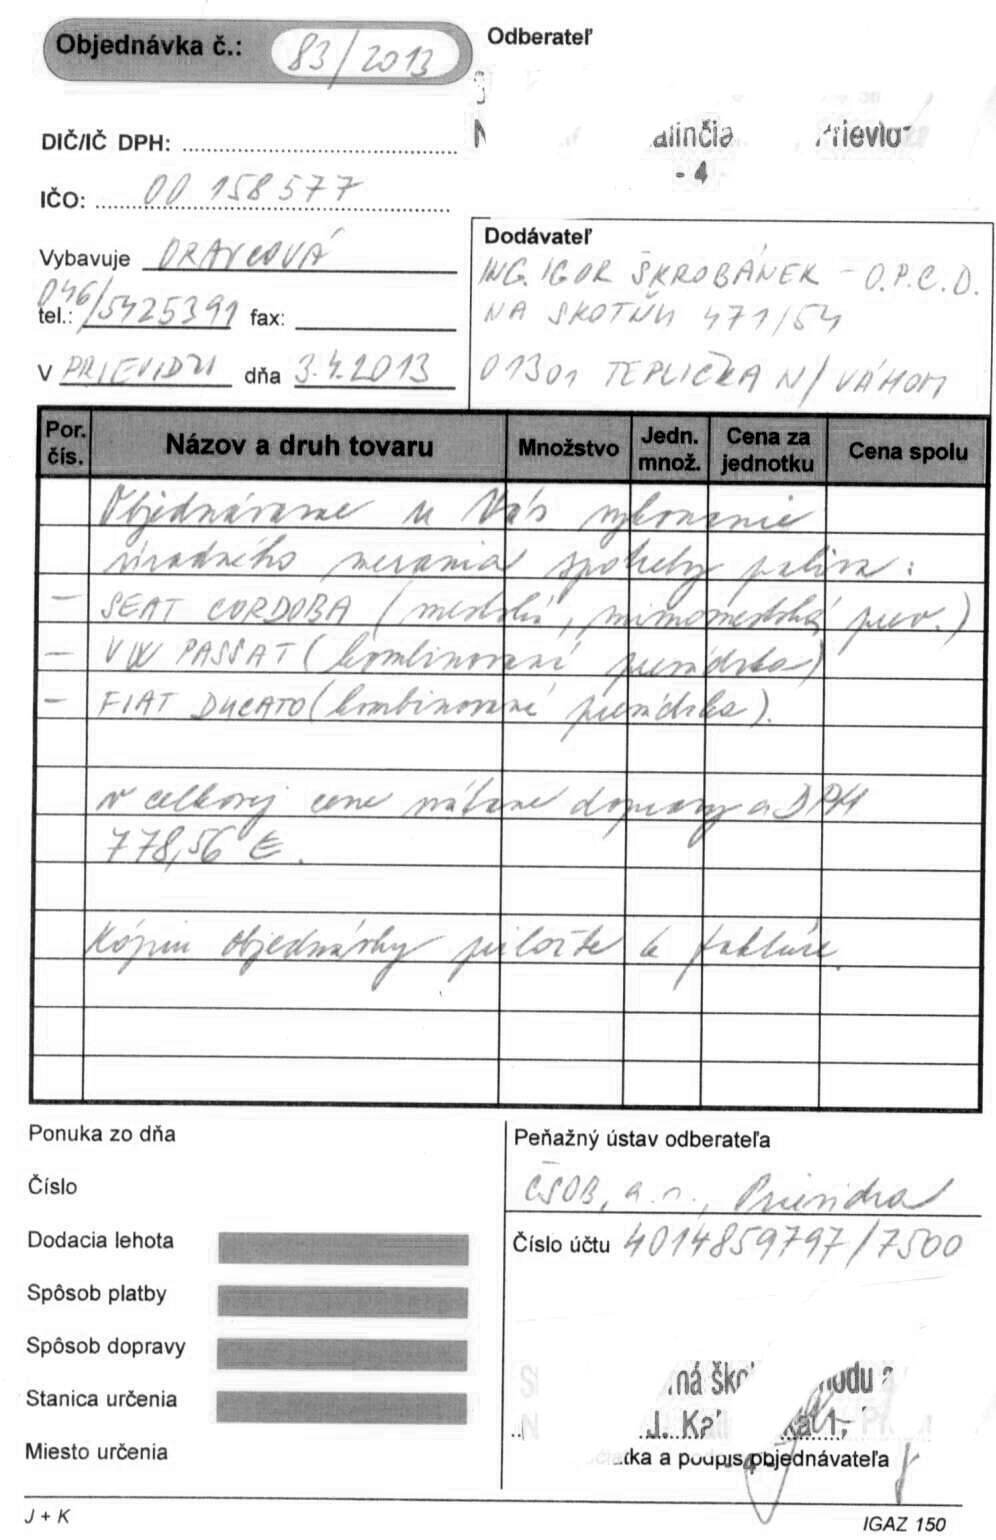 Objednávka č.: 83/2013
Odberateľ
DIČ/IČ DPH:
- 4
IČO: 00 158 577
Vybavuje ORAVCOVÁ
tel.: 046/5425391 fax:
V PRIEVIDZI dňa 3.4.2013
Dodávateľ
ING. IGOR ŠKROBÁNEK - O.P.C.D.
NA SKOTŇU 471/54
01301 TEPLIČKA N/ VÁHOM
Por. čís. Názov a druh tovaru Množstvo Jedn. množ. Cena za jednotku Cena spolu
Objednávame u Vás vykonanie
úradného merania spotreby paliva:
- SEAT CORDOBA (mestská, mimomestská prev.)
- VW PASSAT (kombinovaná prevádzka)
- FIAT DUCATO (kombinovaná prevádzka).
v celkovej cene vrátane dopravy a DPH
778,56 €.
Kópiu objednávky priložte k faktúre.
Ponuka zo dňa
Číslo
Dodacia lehota
Spôsob platby
Spôsob dopravy
Stanica určenia
Miesto určenia
Peňažný ústav odberateľa
ČSOB, a.s., Prievidza
Číslo účtu 4014859797/7500
a podpis objednávateľa
- 4 -
J + K
IGAZ 150